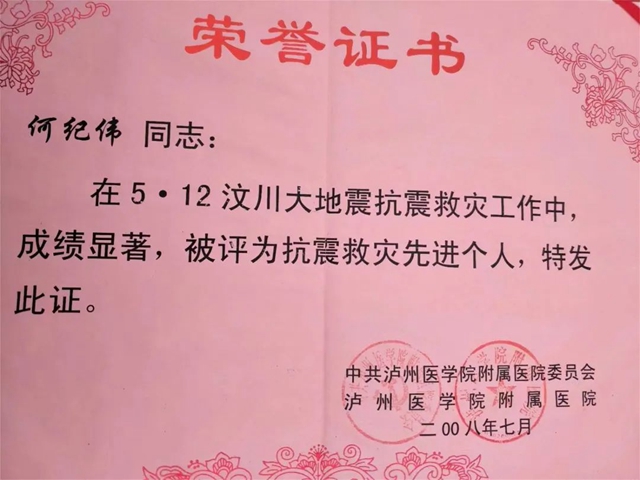 荣誉证书
何纪伟 同志：
在5·12汶川大地震抗震救灾工作中，
成绩显著，被评为抗震救灾先进个人，特发
此证。
中共泸州医学院附属医院委员会
泸州医学院附属医院
二00八年七月